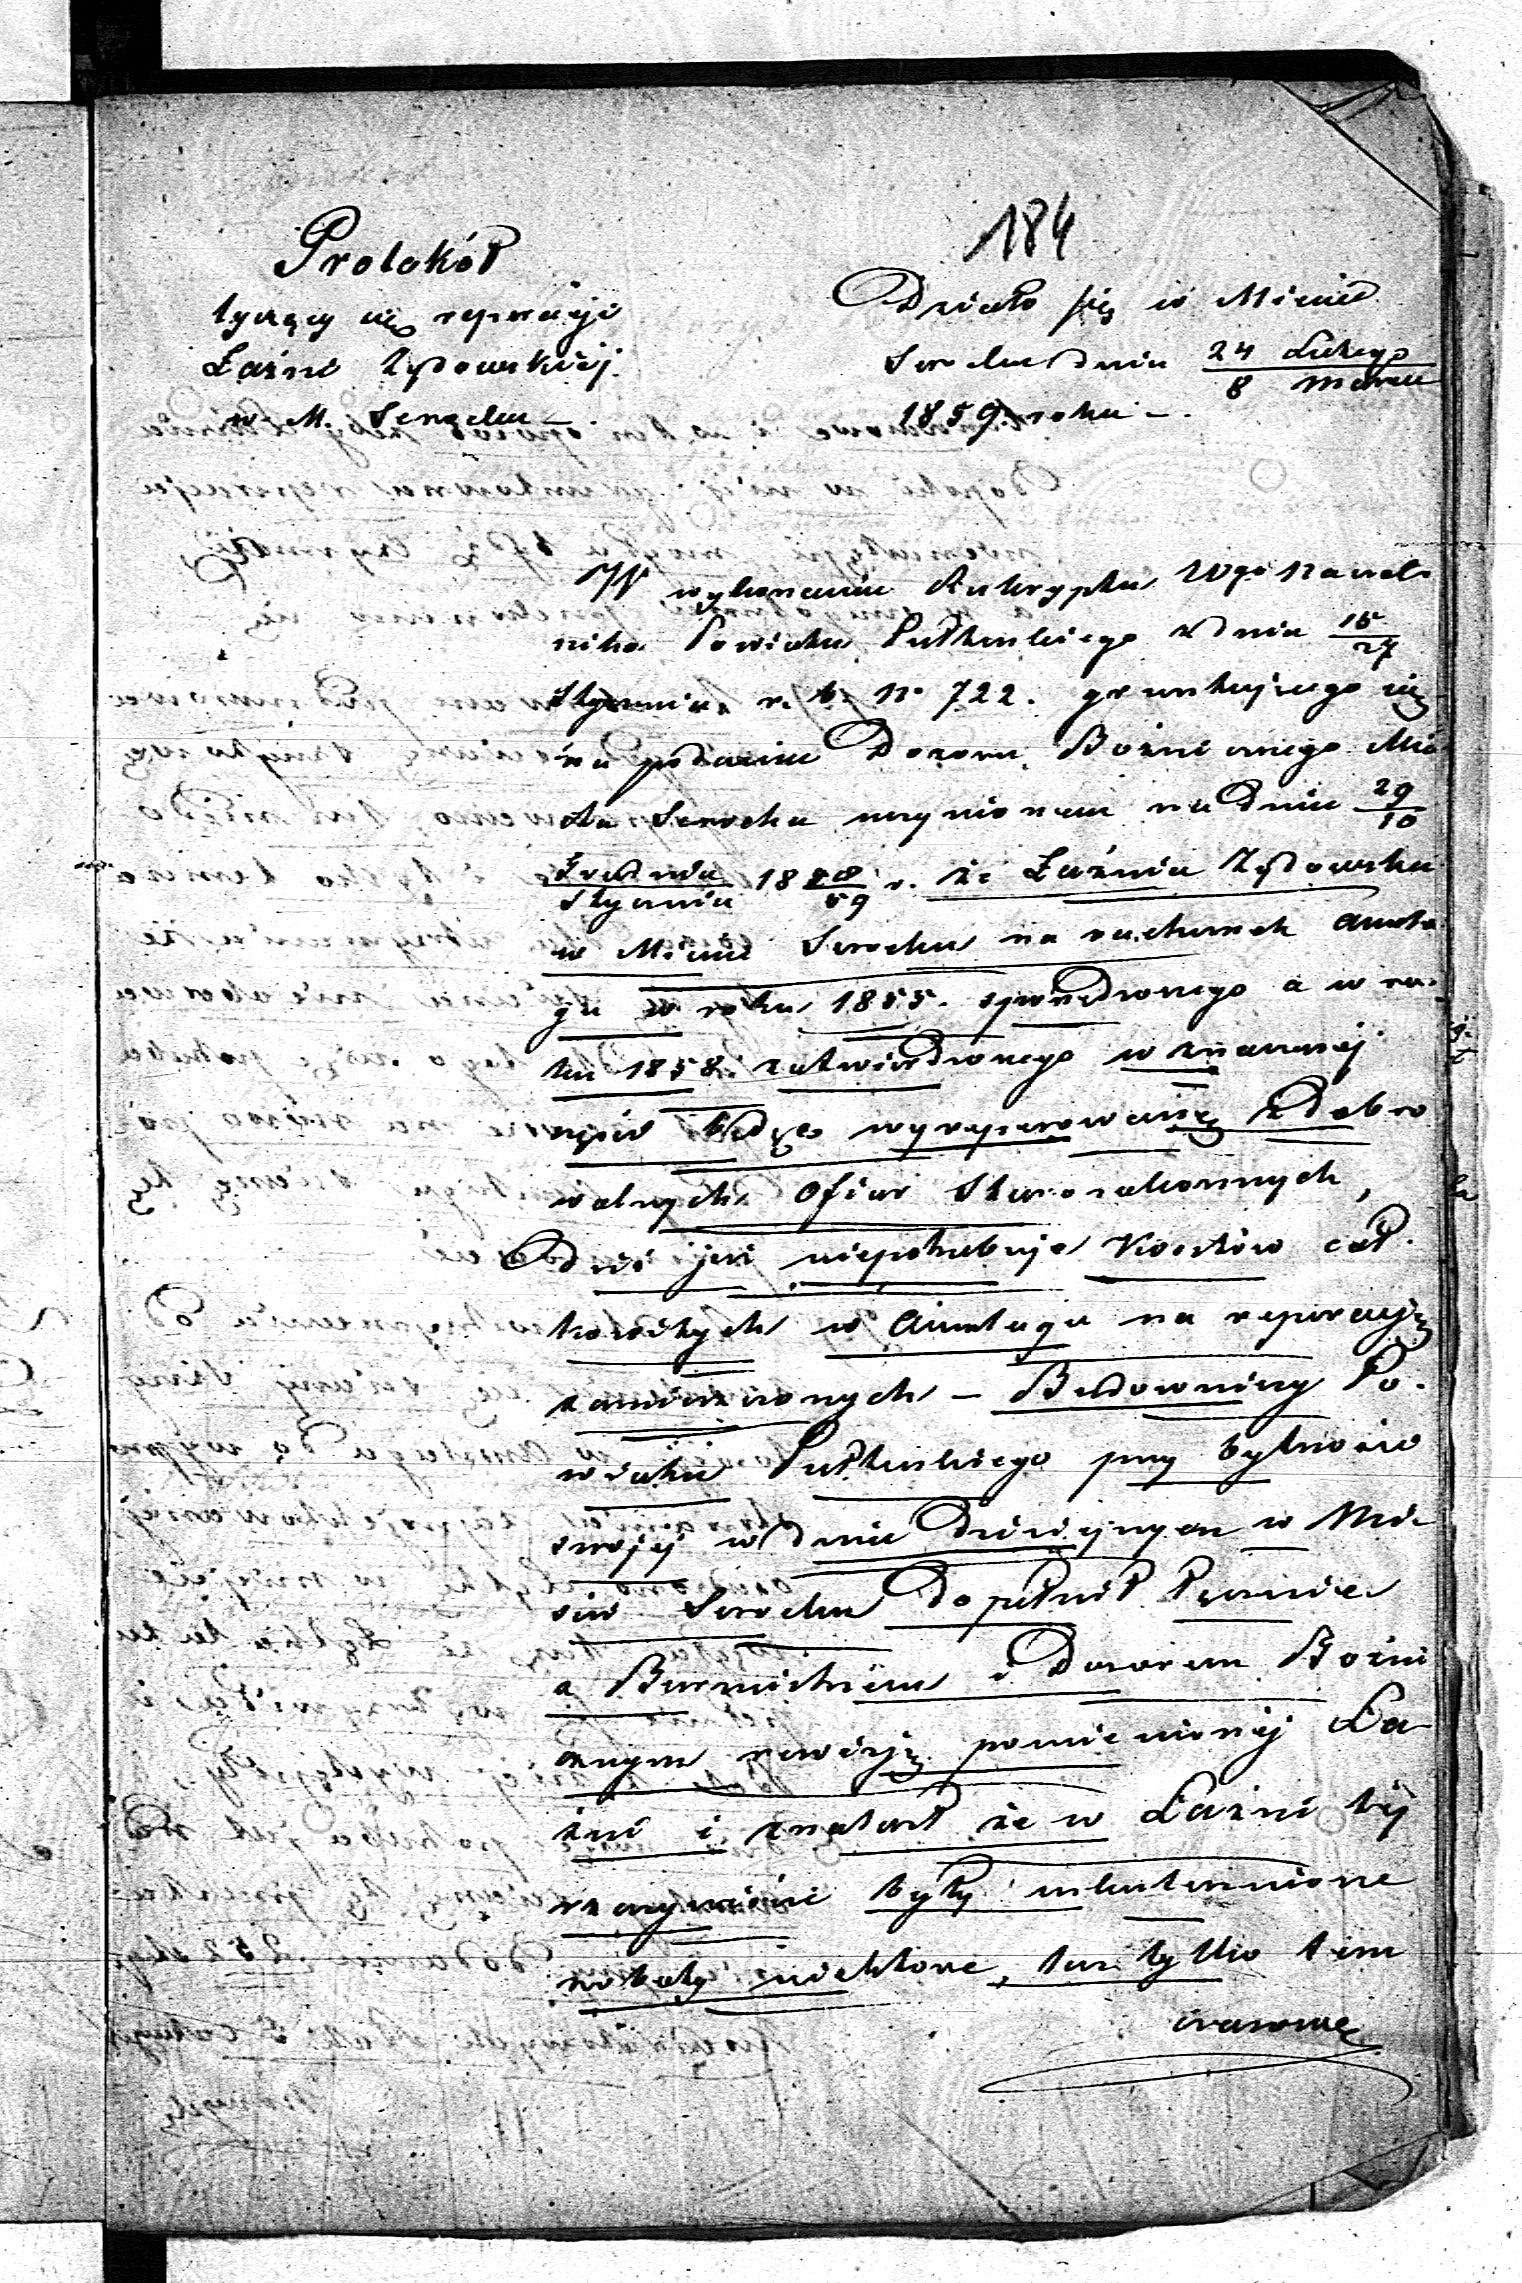 184
Protokół
tyczący się reperacji
Łaźni Żydowskiej
w M. Serocku –.
Działo się w Mieście
Serocku dnia 24 Lutego / 8 Marca
1859 roku –.
W wykonaniu Reskryptu Wgo Naczel
nika Powiatu Pułtuskiego z dnia 15/27
Stycznia r. b. No 722. gruntującego się
na podaniu Dozoru Bóżniczego Mia
sta Serocka uczynionem na dniu 29/10
Grudnia/Stycznia 1858/59 r. że Łaźnia Żydowska
w Mieście Serocku na rachunek Anszla
gu w roku 1855. sporządzonego a w ro-
ku 1858. zatwierdzonego w znacznej
części będąc wyreperowaną z dobro
wolnych ofiar Starozakonnych,
dziś już niepotrzebuje kosztów cał-
kowitych w Anszlagu na reperacją
zamieszczonych – Budowniczy Po-
wiatu Pułtuskiego przy bytności
swojej w dniu dzisiejszym w Mie
ście Serocku dopełnił łącznie
z Burmistrzem i Dozorem Bóżni
cznym rewizją pomienionej Ła
źni i znalazł że w Łaźni tej
rzeczywiście były uskutecznione
roboty niektóre, lecz tylko tym
czasowe